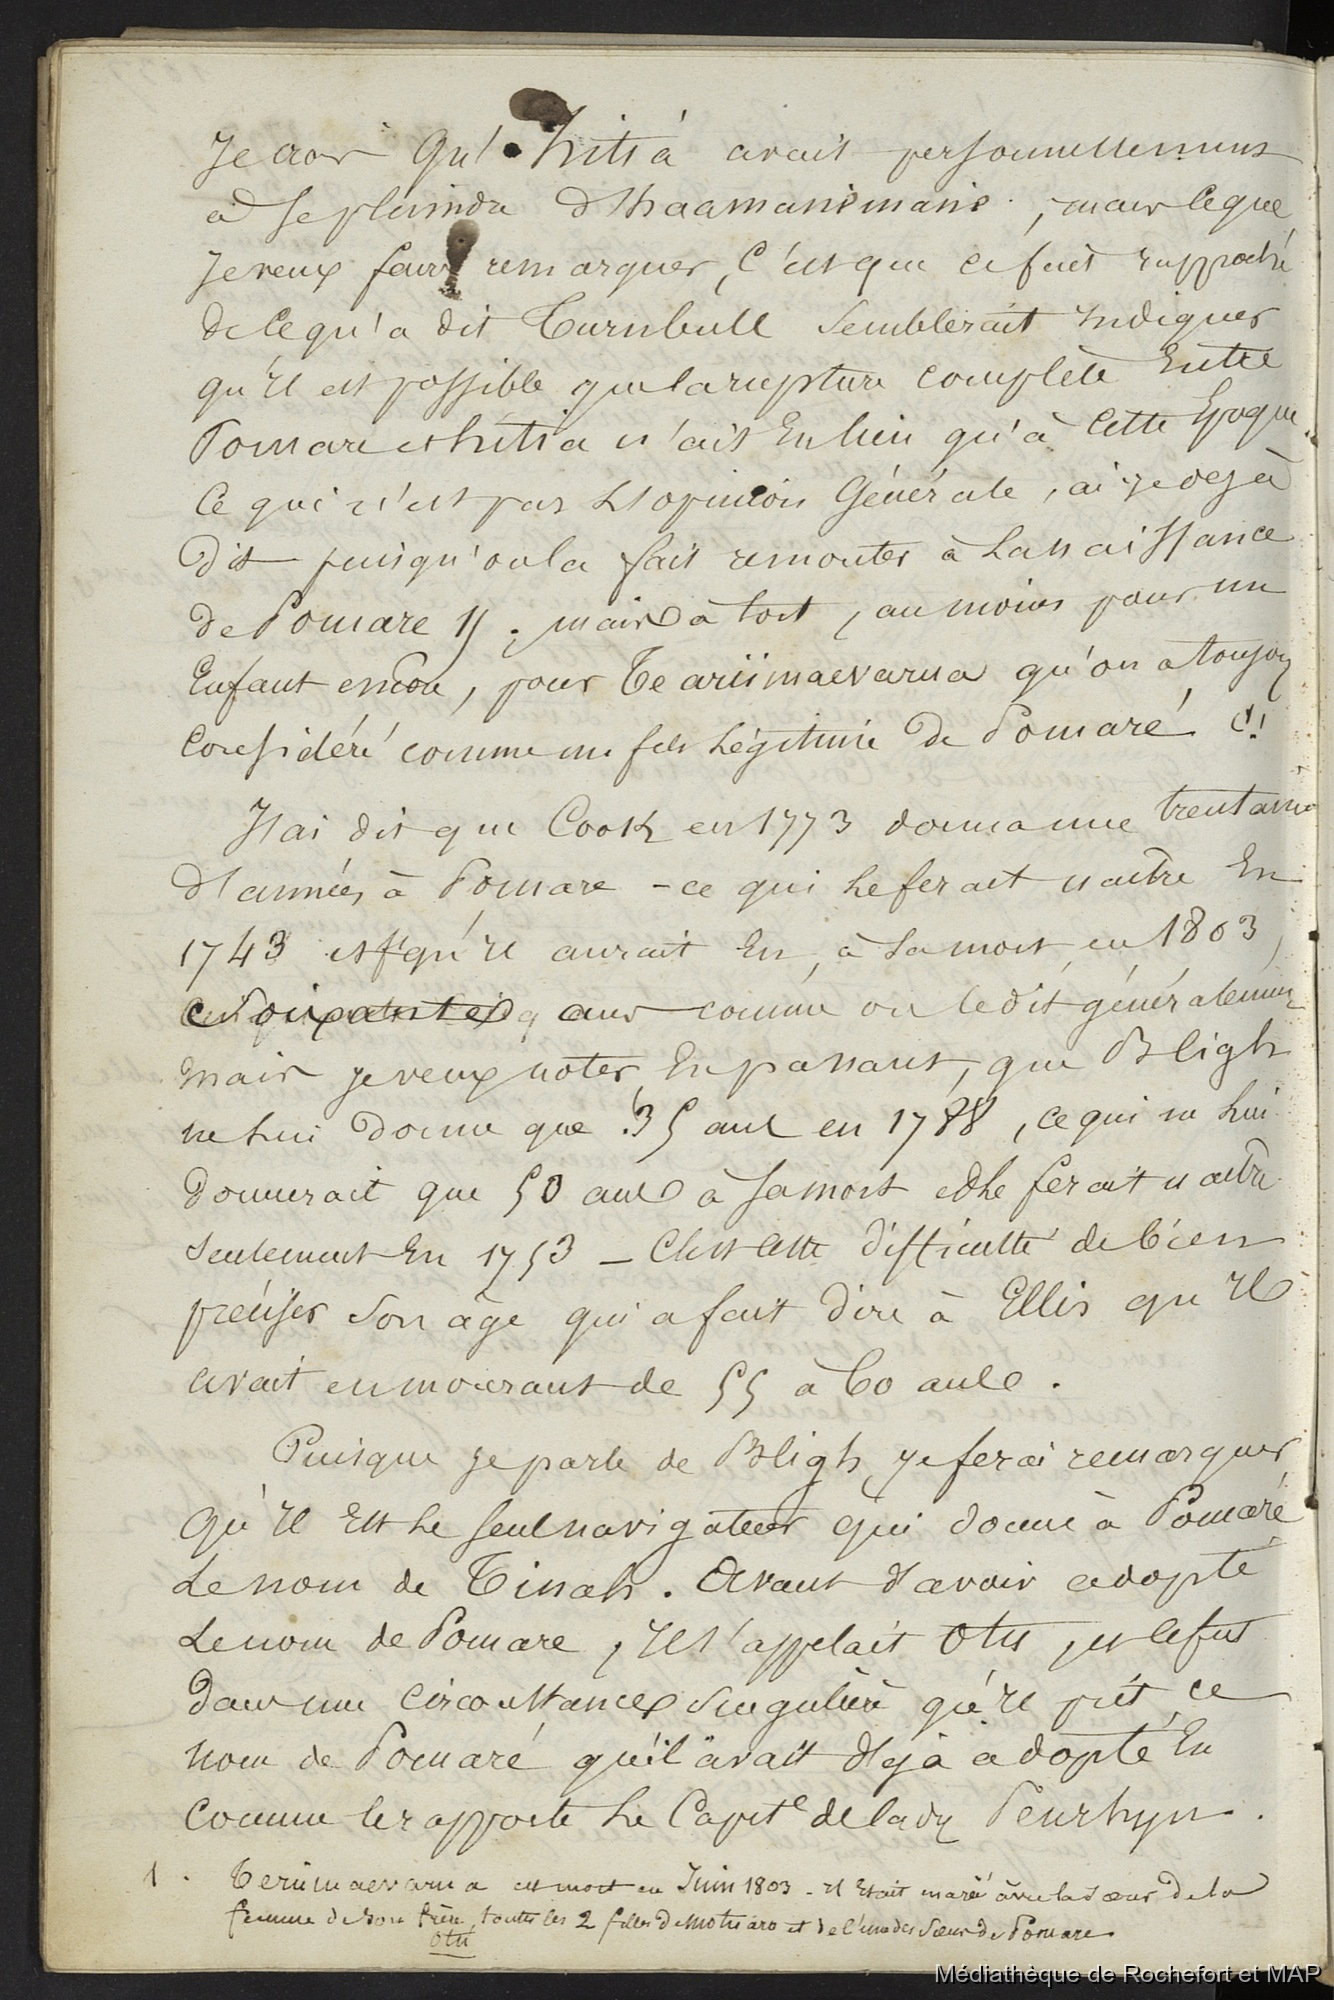 Je crois qu'hitia avait personnellement
à se plaindre d'haamanimani, mais ce que
je veux faire remarquer, c'est que ce fait rapproché
de ce qu'a dit Turnbull semblerait indiquer
qu'il est possible que la rupture complète entre
Pomare et hitia n'ait eu lieu qu'à cette époque
Ce qui n'est pas l'opinion générale, ai-je dejà
dit puisqu'on la fait remonter à la naissance
de Pomare II ; mais à tort, au moins pour un
Enfant encore, pour Teariimaevarua qu'on a toujou
considéré comme un fils légitime de Pomaré
J'ai dit que Cook en 1773 donna une trentaine
d'années à Pomare - ce qui le ferait naître en
1743 et qu'il aurait eu, à sa mort en 1803,
ans comme on le dit généralement
mais je veux noter, en passant, que Bligh
ne lui donne que 35 ans en 1788, ce qui ne lui
donnerait que 50 ans à sa mort et le ferait naitre
seulement en 1753 - C'est cette difficulté de bien
préciser son âge qui a fait dire à Ellis qu'il
avait en mourant de 55 à 60 ans.
Puisque je parle de Bligh, je ferai remarquer
qu'il est le seul navigateur qui donne à Pomaré
le nom de Tinah. Avant d'avoir adopté
le nom de Pomare, il s'appelait Otu, et ce fut
dans une circonstance singulière qu'il prit ce
nom de Pomaré qu'il avait déjà adopté en
comme le rapporte le Capit^e de lady Penrhyn.
1. Teriimaevarua est mort en Juin 1803 - il était marié avec la sœur de la
femme de son frère, toutes les 2 filles de motuaro et de l'une des sœurs de Pomare.
Otu
Médiathèque de Rochefort et MAP